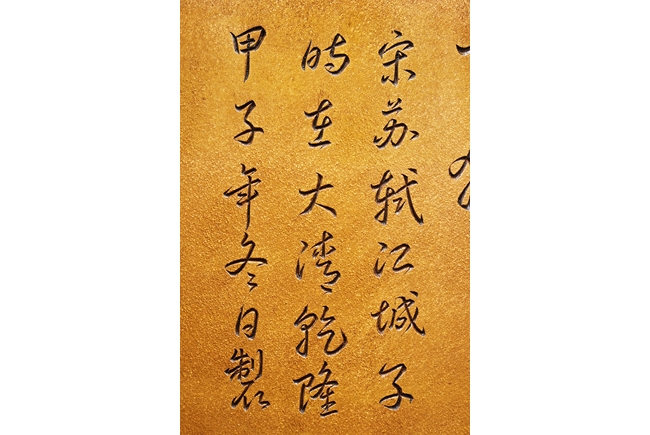 宋苏轼江城子
时在大清乾隆
甲子年冬日製